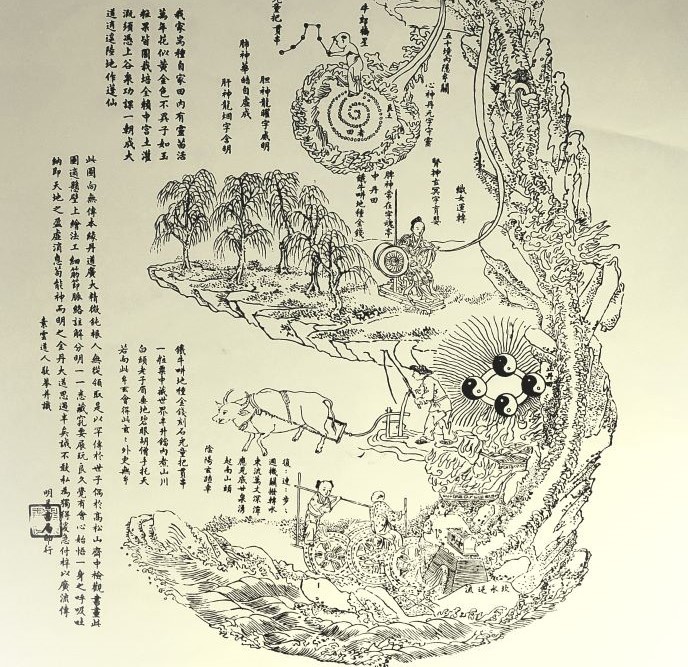 牛郎橋星
童把貫串
五十境內隱玄關
心神丹元字守靈
膽神龍曜字威明
肺神華皓自虛成
肝神龍烟字含明
我家耑種自家田內有靈苗活
萬年花似黃金色不異子如玉
粒果皆圓栽培全賴中宮土灌
溉須憑上谷泉功課一朝成大
道逍遙陸地作蓬仙
織女運轉
腎神玄冥字育嬰
脾神常在字魂亭
中丹田
鐵牛耕地種金錢
正丹田
鐵牛耕地種金錢刻石兒童把貫串
一粒粟中藏世界半升鐺內煮山川
白頭老子眉垂地碧眼胡僧手托天
若向此玄玄會得此玄玄外更無玄
復復連連步步
週機關撥轉水
東流萬丈深潭
應見底甘泉湧
起南山頭
陰陽玄踏車
坎水逆流
此圖向無傳本緣丹道廣大精微鈍根人無從領取是以罕傳於世予偶於高松山齋中檢觀書畫此
圖適懸壁上繪法工細筋節脈絡註解分明一一悉藏竅要展玩良久覺有會心始悟一身之呼吸吐
納即天地之盈虛消息苟能神而明之金丹大道思過半矣誠不敢私為獨得爰急付梓以廣流傳
素雲道人敬摹并識
印行